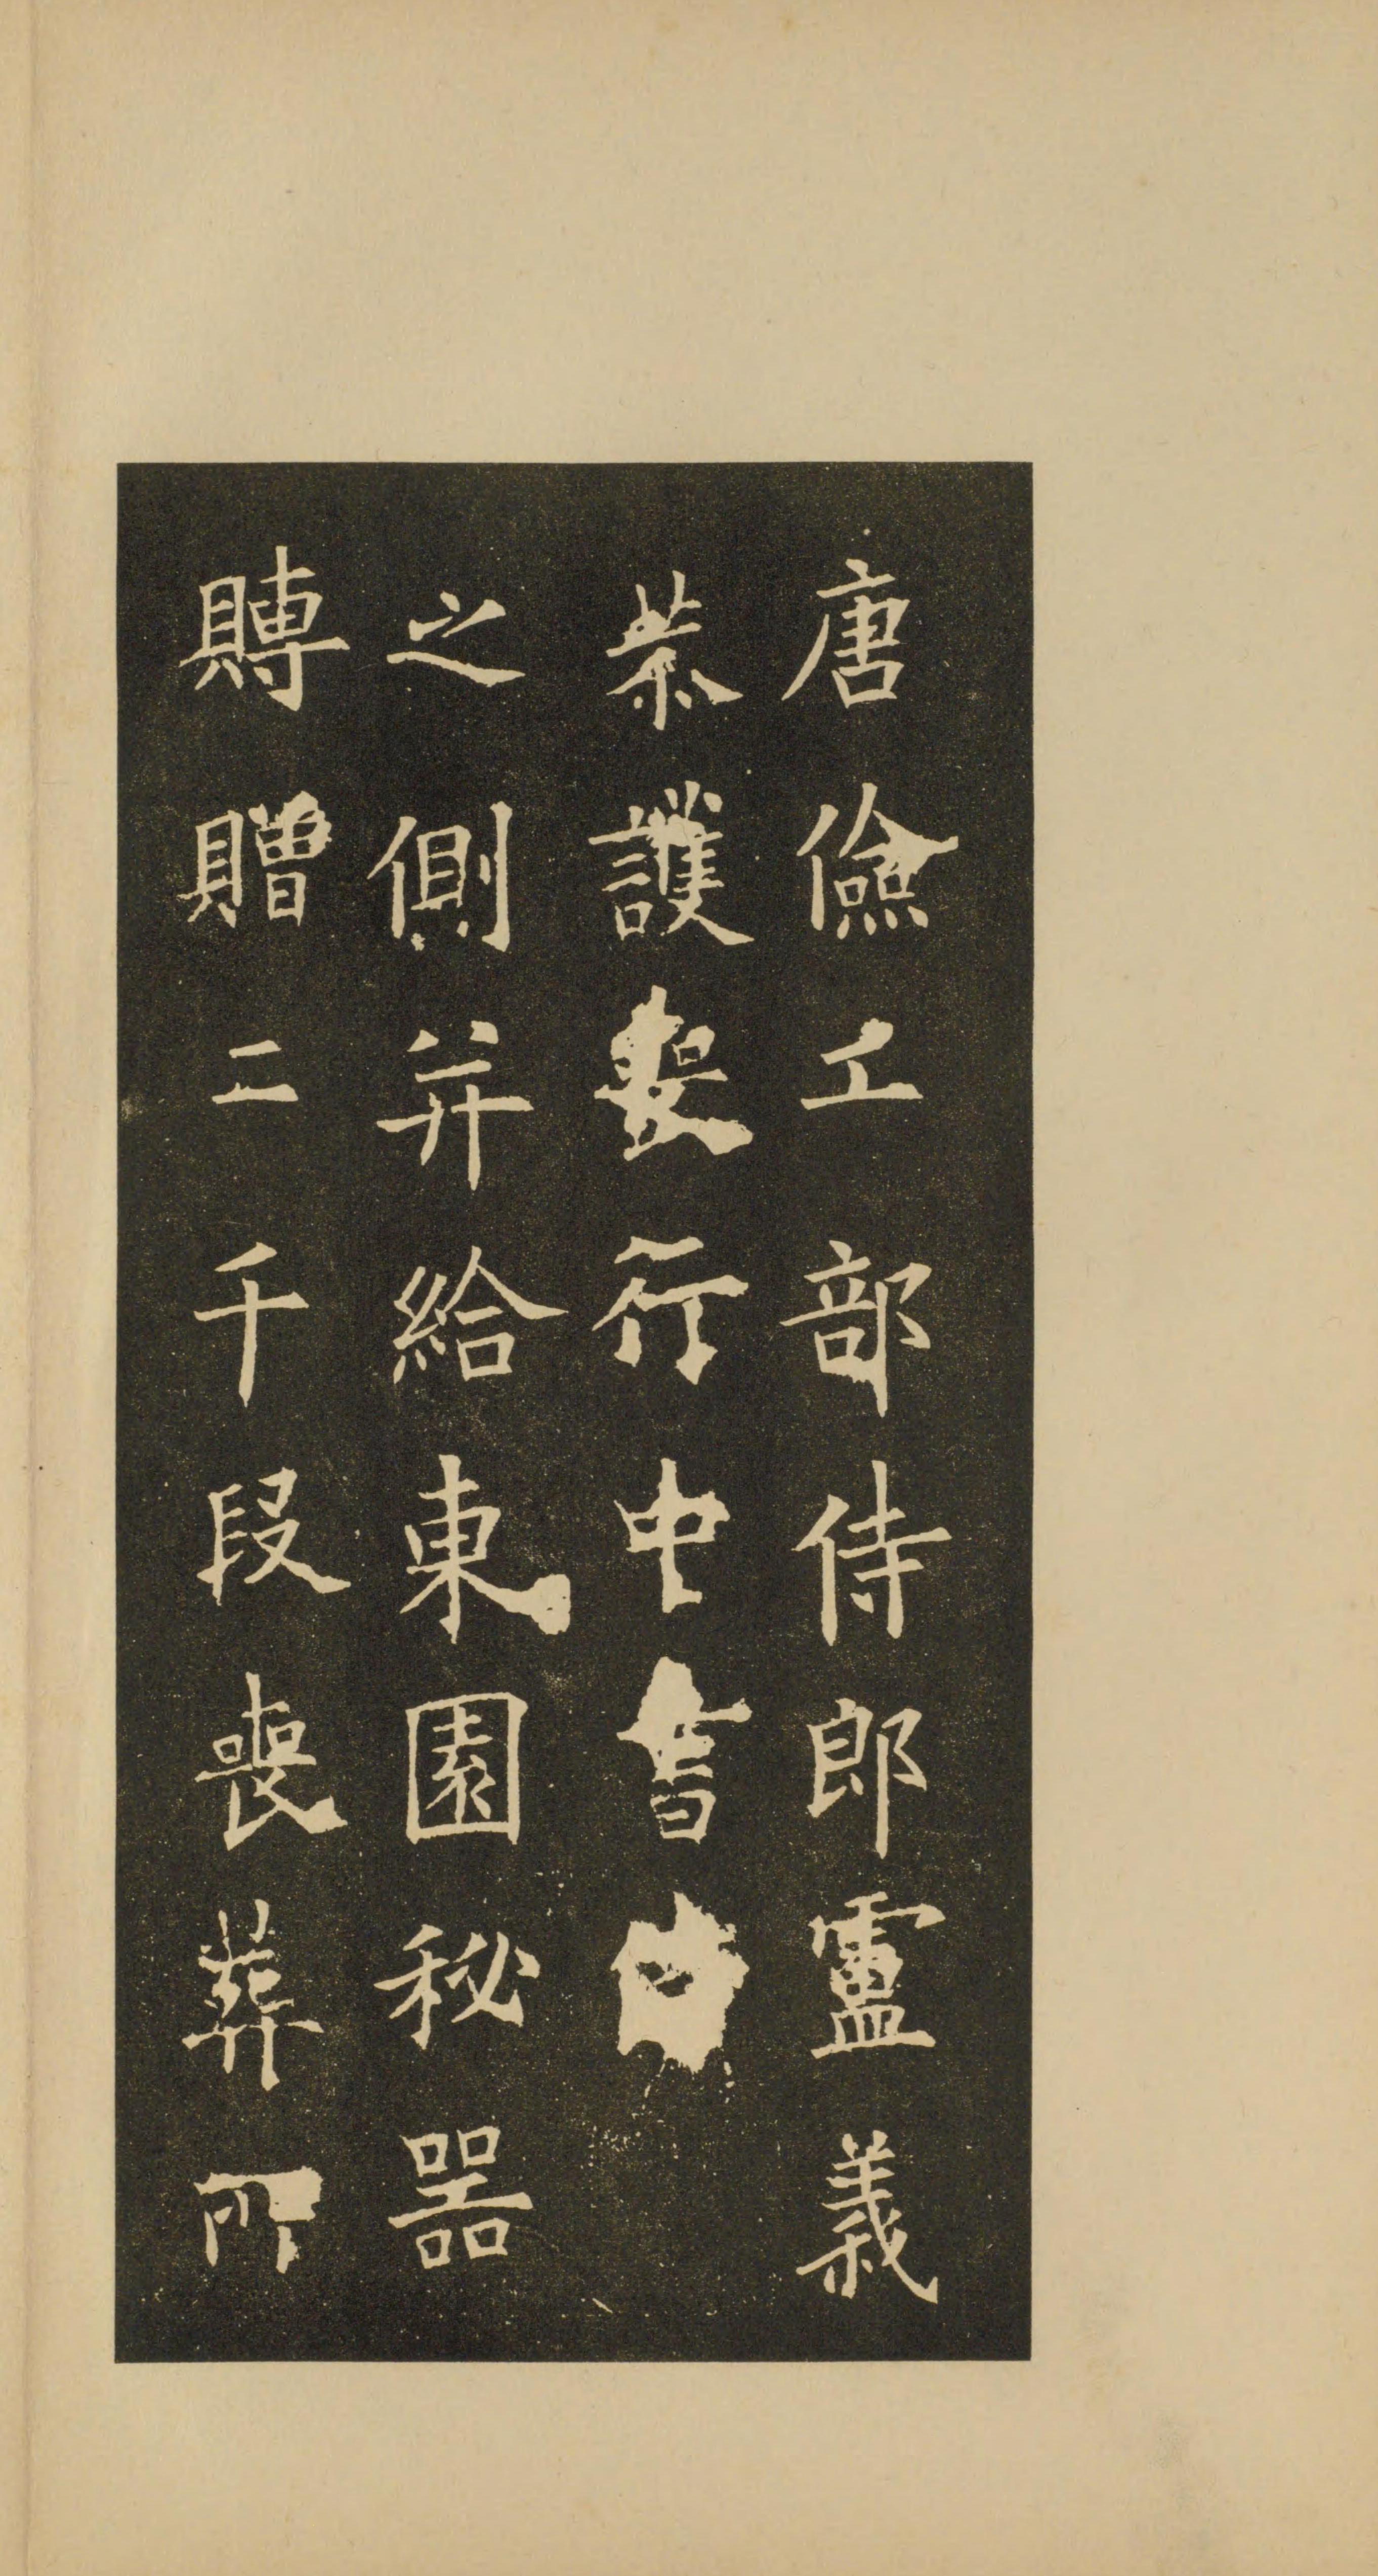 唐儉工部侍郎盧義
恭護喪行中書
之側并給東園秘器
賻贈二千段喪葬所